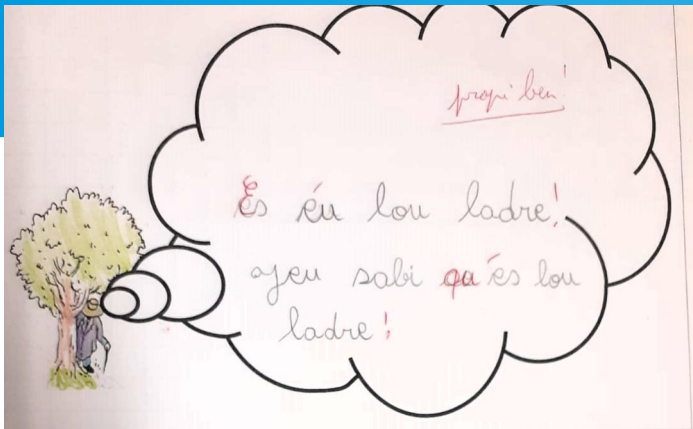 propi ben!
És éu lou ladre!
yeu sabi qu'es lou
ladre!